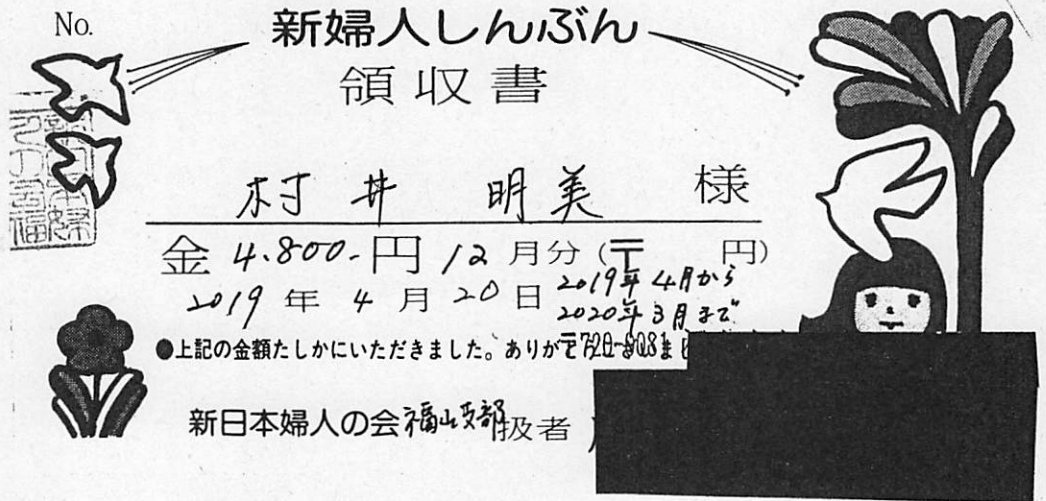 No.
新婦人しんぶん
領収書
村井 明美 様
金 4.800-円 12月分(〒 円)
2019年4月20日 2019年4月から
2020年3月まで
●上記の金額たしかにいただきました。ありが
新日本婦人の会福山支部扱者